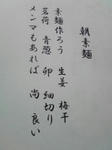 朝素麺
素麺作ろう 生姜 梅干
茗荷 青葱 卯 細切り
メンマもあれば 尚良い